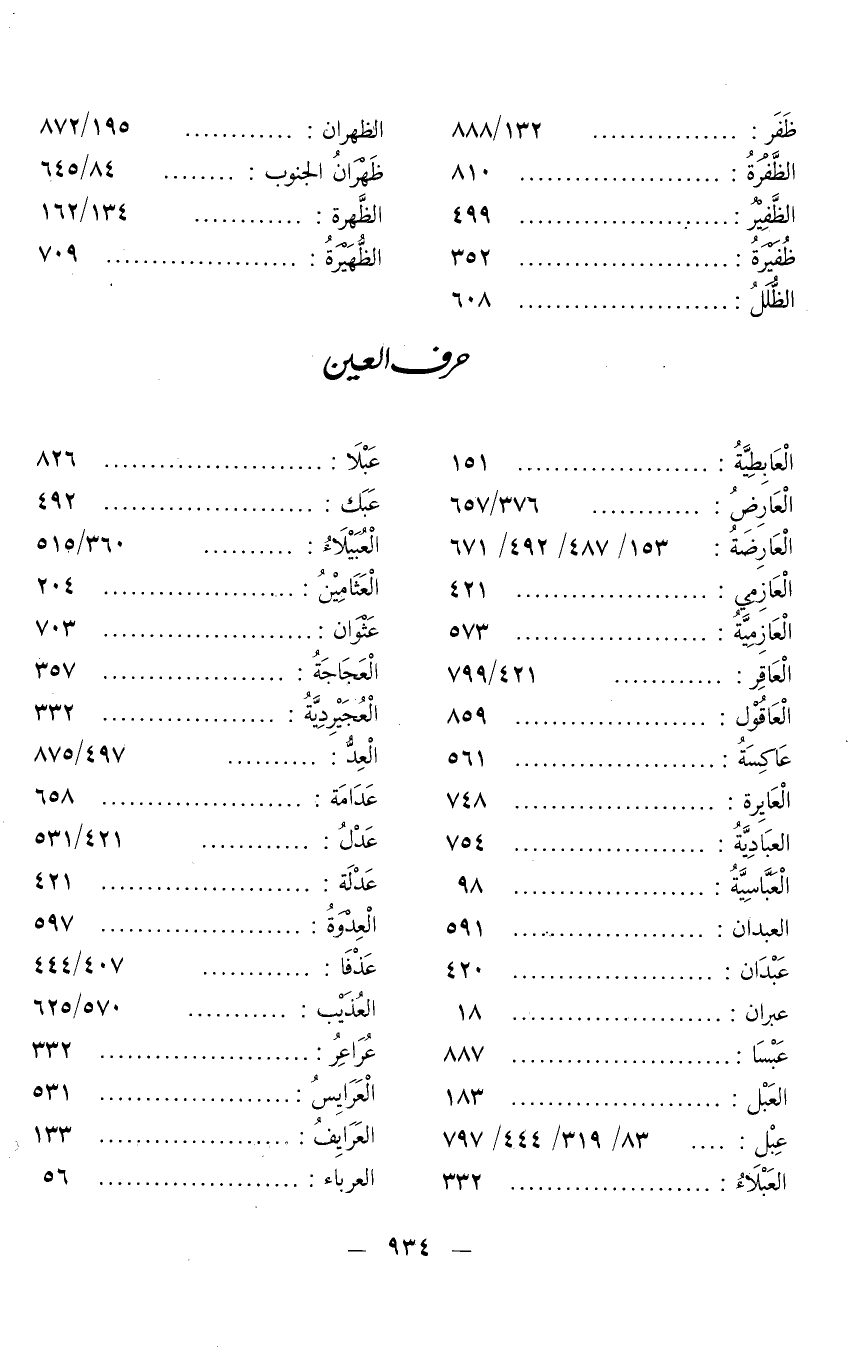 ظَفَر : ................ ١٣٢/٨٨٨
الظَّفْرَةُ : ...................... ٨١٠
الظَّفِيْرُ : ....................... ٤٩٩
ظُفَيْرَةُ : ....................... ٣٥٢
الظُّلَلُ : ....................... ٦٠٨
الظهران : ............ ١٩٥/٨٧٢
ظَهْرَانُ الجنوب : ........ ٨٤/٦٤٥
الظَّهرة : ............ ١٣٤/١٦٢
الظُّهَيْرَةُ : ..................... ٧٠٩
حرف العين
الْعَابِطِيَّةُ : ..................... ١٥١
الْعَارِضُ : ............ ٣٧٦/٦٥٧
الْعَارِضَةُ : ١٥٣/ ٤٨٧/ ٤٩٢/ ٦٧١
الْعَازِمِي : ..................... ٤٢١
الْعَازِمِيَّةُ : ..................... ٥٧٣
الْعَاقِر : ............ ٤٢١/٧٩٩
الْعَاقُوْل : ..................... ٨٥٩
عَاكِسَةُ : ...................... ٥٦١
الْعَايِرة : ...................... ٧٤٨
العبَادِيَّةُ : ..................... ٧٥٤
الْعَبَّاسِيَّةُ : ..................... ٩٨
العبدان : ..................... ٥٩١
عَبْدَان : ...................... ٤٢٠
عبران : ....................... ١٨
عَبْسَا : ........................ ٨٨٧
العَبْل : ....................... ١٨٣
عِبْل : .... ٨٣/ ٣١٩/ ٤٤٤/ ٧٩٧
العَبْلَاءُ : ...................... ٣٣٢
عَبْلَا : ........................ ٨٢٦
عَبَك : ....................... ٤٩٢
الْعُبَيْلَاءُ : .......... ٣٦٠/٥١٥
الْعَثَامِيْنُ : ..................... ٢٠٤
عَثْوَان : ....................... ٧٠٣
الْعَجَاجَةُ : .................... ٣٥٧
الْعُجَيْرِدِيَّةُ : ................... ٣٣٢
الْعِدُّ : .......... ٤٩٧/٨٧٥
عَدَامَة : ...................... ٦٥٨
عَدْلُ : ............ ٤٢١/٥٣١
عَدْلَة : ....................... ٤٢١
الْعِدْوَةُ : ...................... ٥٩٧
عَذْفَا : ............ ٤٠٧/٤٤٤
العُذَيْب : ........... ٥٧٠/٦٢٥
عُرَاعِرُ : ....................... ٣٣٢
الْعَرَايِسُ : ..................... ٥٣١
العَرَايِفُ : ..................... ١٣٣
العرباء : ...................... ٥٦
— ٩٣٤ —